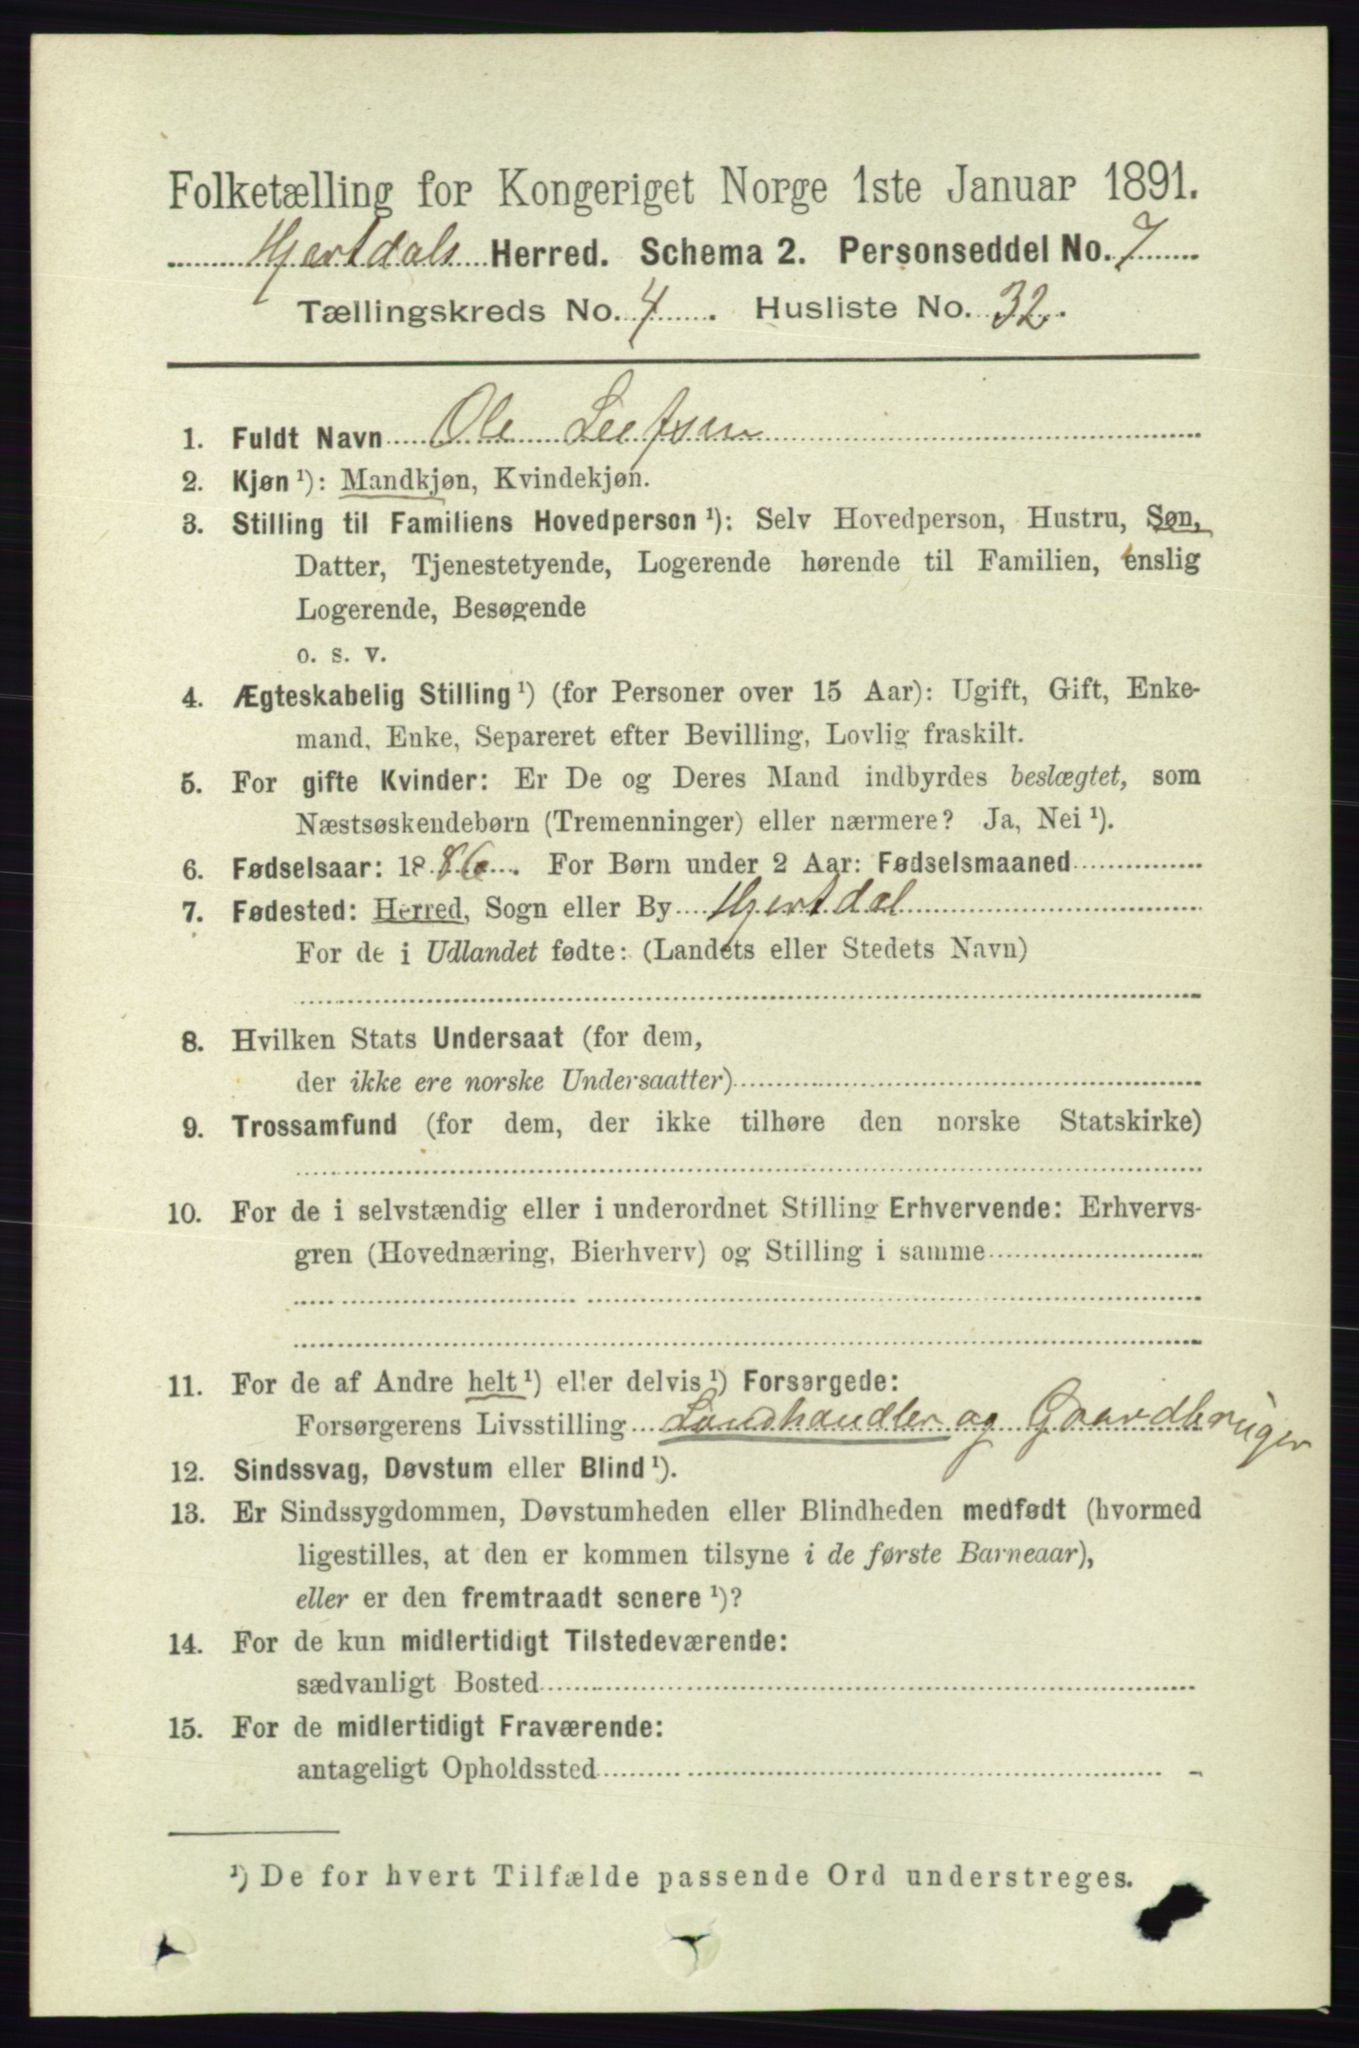 Folketælling for Kongeriget Norge 1ste Januar 1891.
Hjertdals Herred. Schema 2. Personseddel No. 7
Tællingskreds No. 4. Husliste No. 32.
1. Fuldt Navn Ole Leefsen
2. Kjøn ¹): Mandkjøn, Kvindekjøn.
3. Stilling til Familiens Hovedperson ¹): Selv Hovedperson, Hustru, Søn,
Datter, Tjenestetyende, Logerende hørende til Familien, enslig
Logerende, Besøgende
o. s. v.
4. Ægteskabelig Stilling ¹) (for Personer over 15 Aar): Ugift, Gift, Enke-
mand, Enke, Separeret efter Bevilling, Lovlig fraskilt.
5. For gifte Kvinder: Er De og Deres Mand indbyrdes beslægtet, som
Næstsøskendebørn (Tremenninger) eller nærmere? Ja, Nei ¹).
6. Fødselsaar: 1886. For Børn under 2 Aar: Fødselsmaaned
7. Fødested: Herred, Sogn eller By Hjertdal
For de i Udlandet fødte: (Landets eller Stedets Navn)
8. Hvilken Stats Undersaat (for dem,
der ikke ere norske Undersaatter)
9. Trossamfund (for dem, der ikke tilhøre den norske Statskirke)
10. For de i selvstændig eller i underordnet Stilling Erhvervende: Erhvervs-
gren (Hovednæring, Bierhverv) og Stilling i samme
11. For de af Andre helt ¹) eller delvis ¹) Forsørgede:
Forsørgerens Livsstilling Landhandler og Gaardbruger
12. Sindssvag, Døvstum eller Blind ¹).
13. Er Sindssygdommen, Døvstumheden eller Blindheden medfødt (hvormed
ligestilles, at den er kommen tilsyne i de første Barneaar),
eller er den fremtraadt senere ¹)?
14. For de kun midlertidigt Tilstedeværende:
sædvanligt Bosted
15. For de midlertidigt Fraværende:
antageligt Opholdssted
¹) De for hvert Tilfælde passende Ord understreges.